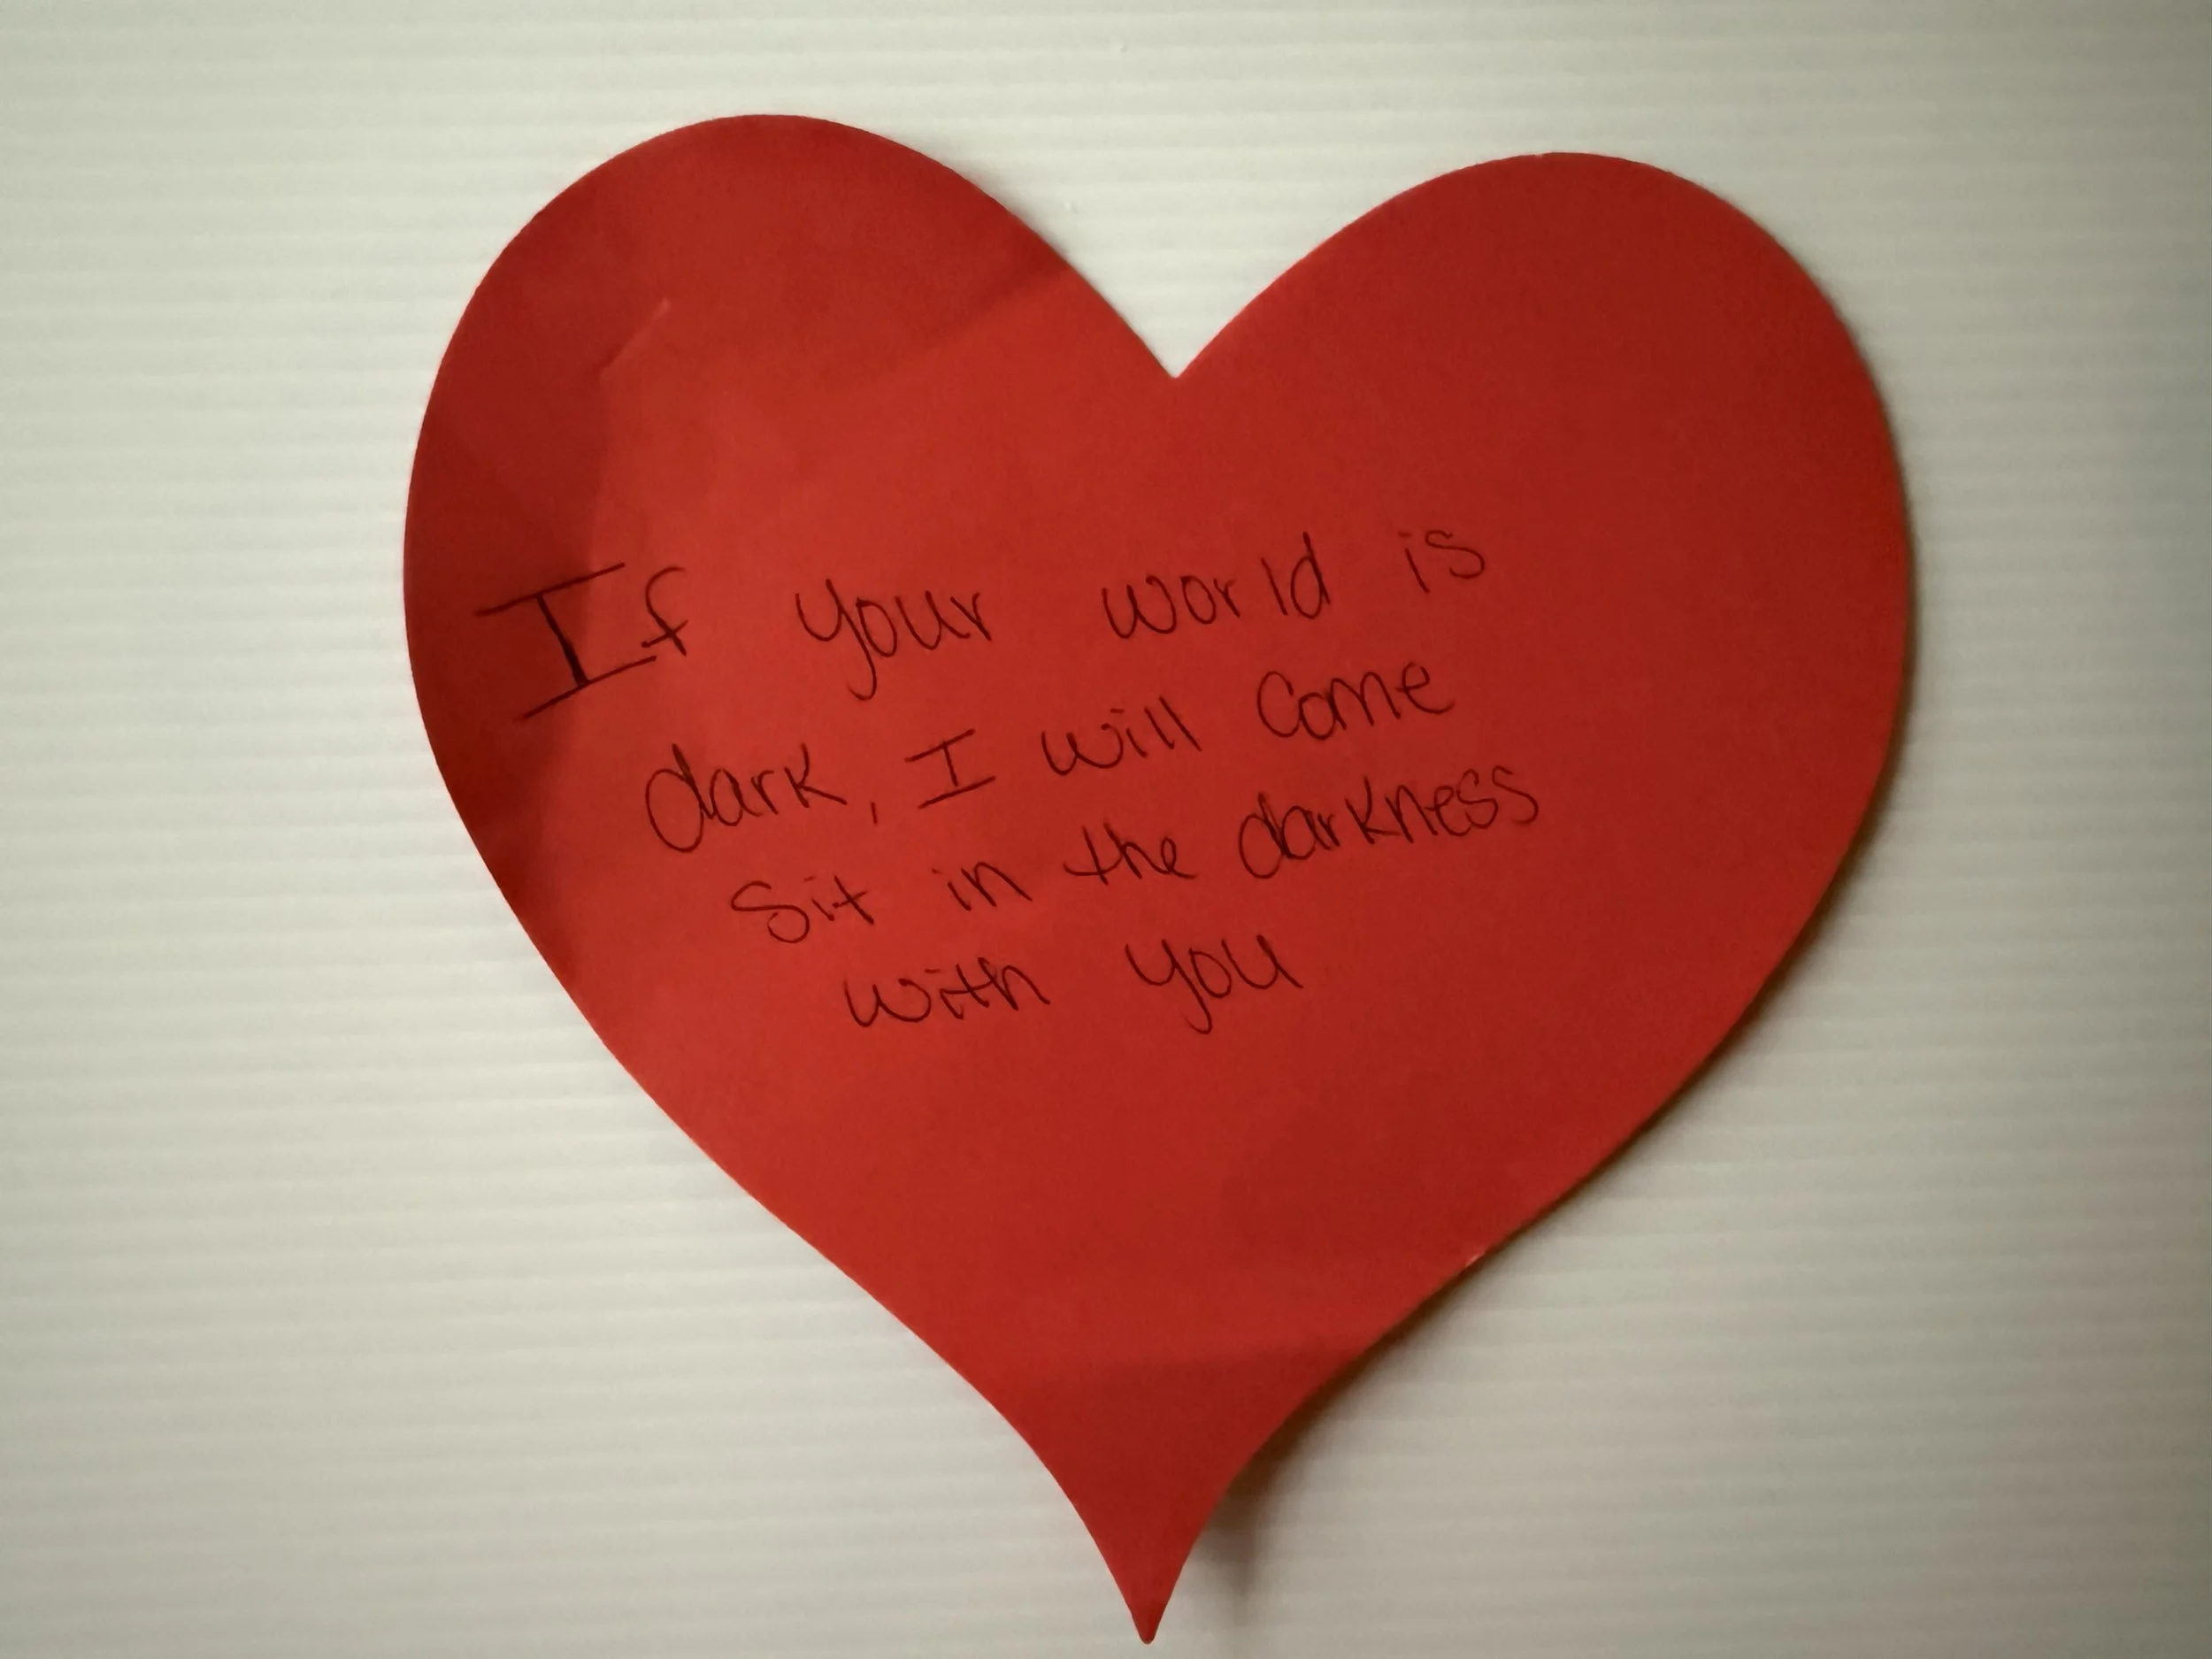 If your world is
dark, I will come
sit in the darkness
with you